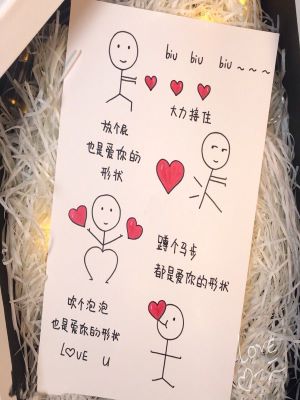 biu biu biu~~~
大力接住
放个屁
也是爱你的
形状
蹲个马步
都是爱你的形状
吹个泡泡
也是爱你的形状
LOVE U
LOVE